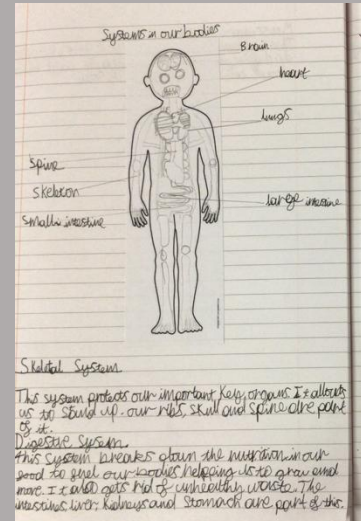 Systems in our bodies
Brain
heart
lungs
Spine
Skeleton
Small intestine
Large intestine
Skeletal System
This system protects our important Key organs. It allows
us to stand up. our ribs, skull and spine are part
of it.
Digestive System
this system breaks down the nutrition in our
food to fuel our bodies helping us to grow and
move. It also gets rid of unhealthy waste. The
intestines liver. Kidneys and Stomach are part of this.